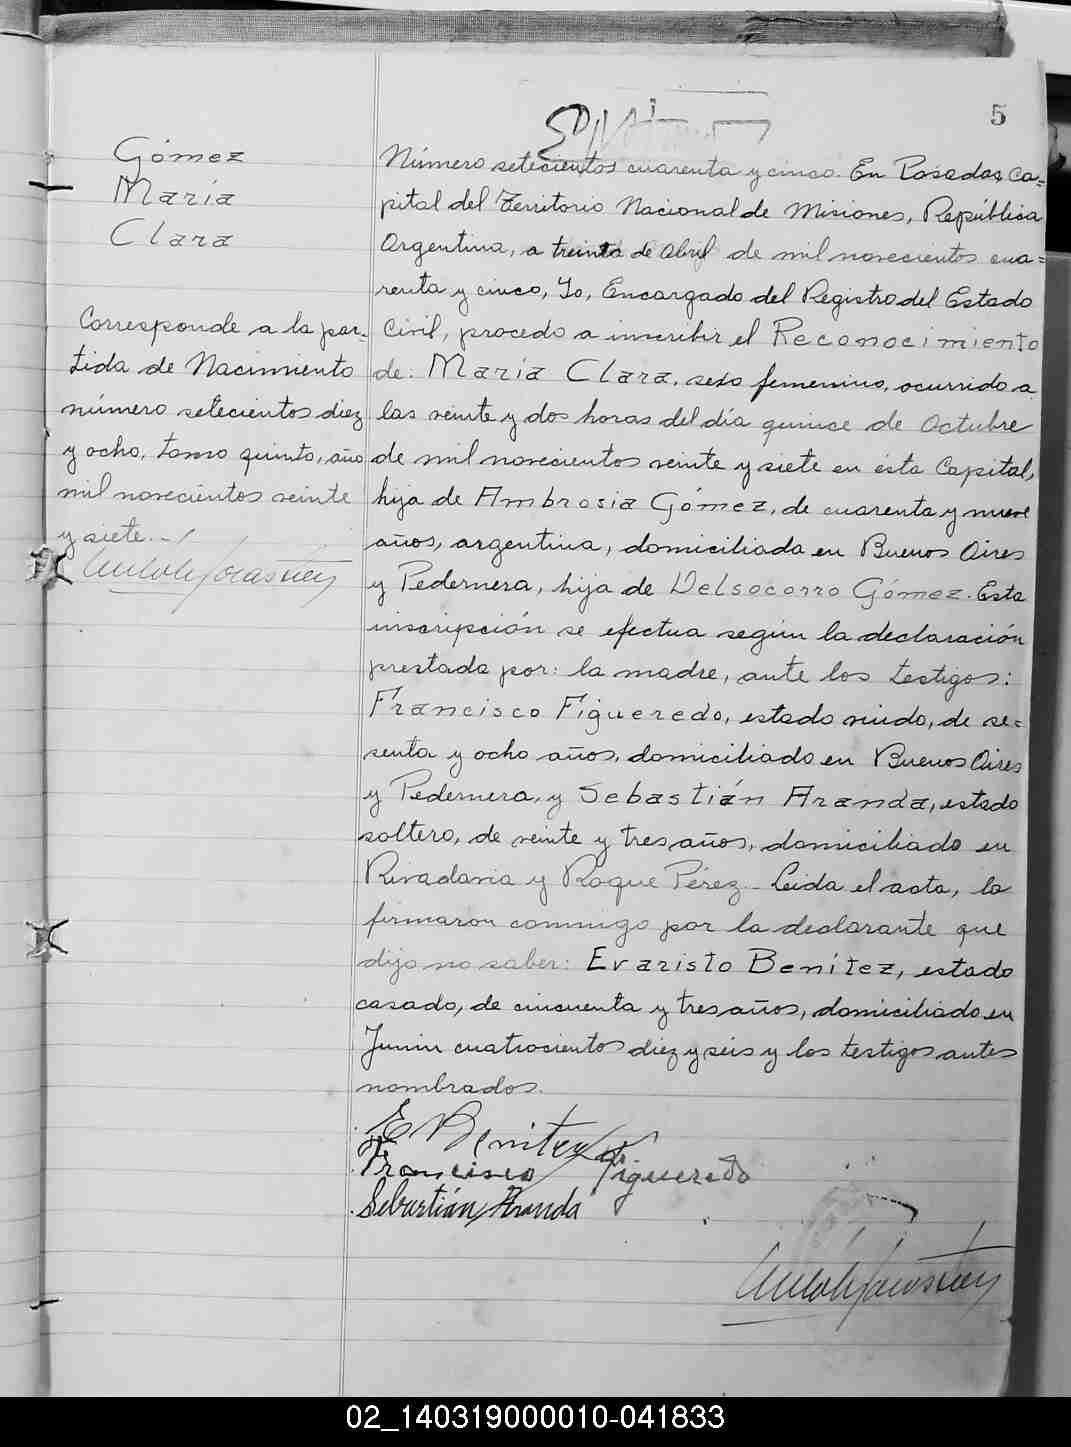 5
Gómez
María
Clara
Corresponde a la par-
tida de Nacimiento
número setecientos diez
y ocho, tomo quinto, año
mil novecientos veinte
y siete.-
Número setecientos cuarenta y cinco. En Posadas, Ca=
pital del Territorio Nacional de Misiones, República
Argentina, a treinta de Abril de mil novecientos cua=
renta y cinco, Yo, Encargado del Registro del Estado
Civil, procedo a inscribir el Reconocimiento
de: María Clara, sexo femenino, ocurrido a
las veinte y dos horas del día quince de Octubre
de mil novecientos veinte y siete en ésta Capital,
hija de Ambrosia Gómez, de cuarenta y nueve
años, argentina, domiciliada en Buenos Aires
y Pedernera, hija de Delsocorro Gómez. Esta
inscripción se efectua según la declaración
prestada por: la madre, ante los testigos:
Francisco Figueredo, estado viudo, de se=
senta y ocho años, domiciliado en Buenos Aires
y Pedernera, y Sebastián Aranda, estado
soltero, de veinte y tres años, domiciliado en
Rivadavia y Roque Pérez - Leida el acta, la
firmaron conmigo por la declarante que
dijo no saber: Evaristo Benítez, estado
casado, de cincuenta y tres años, domiciliado en
Junin cuatrocientos diez y seis y los testigos antes
nombrados.
E Benitez
Francisco Figueredo
Sebastián Aranda
02_140319000010-041833